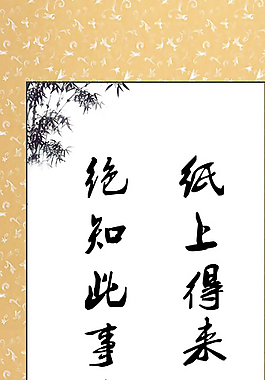 纸上得来
绝知此事